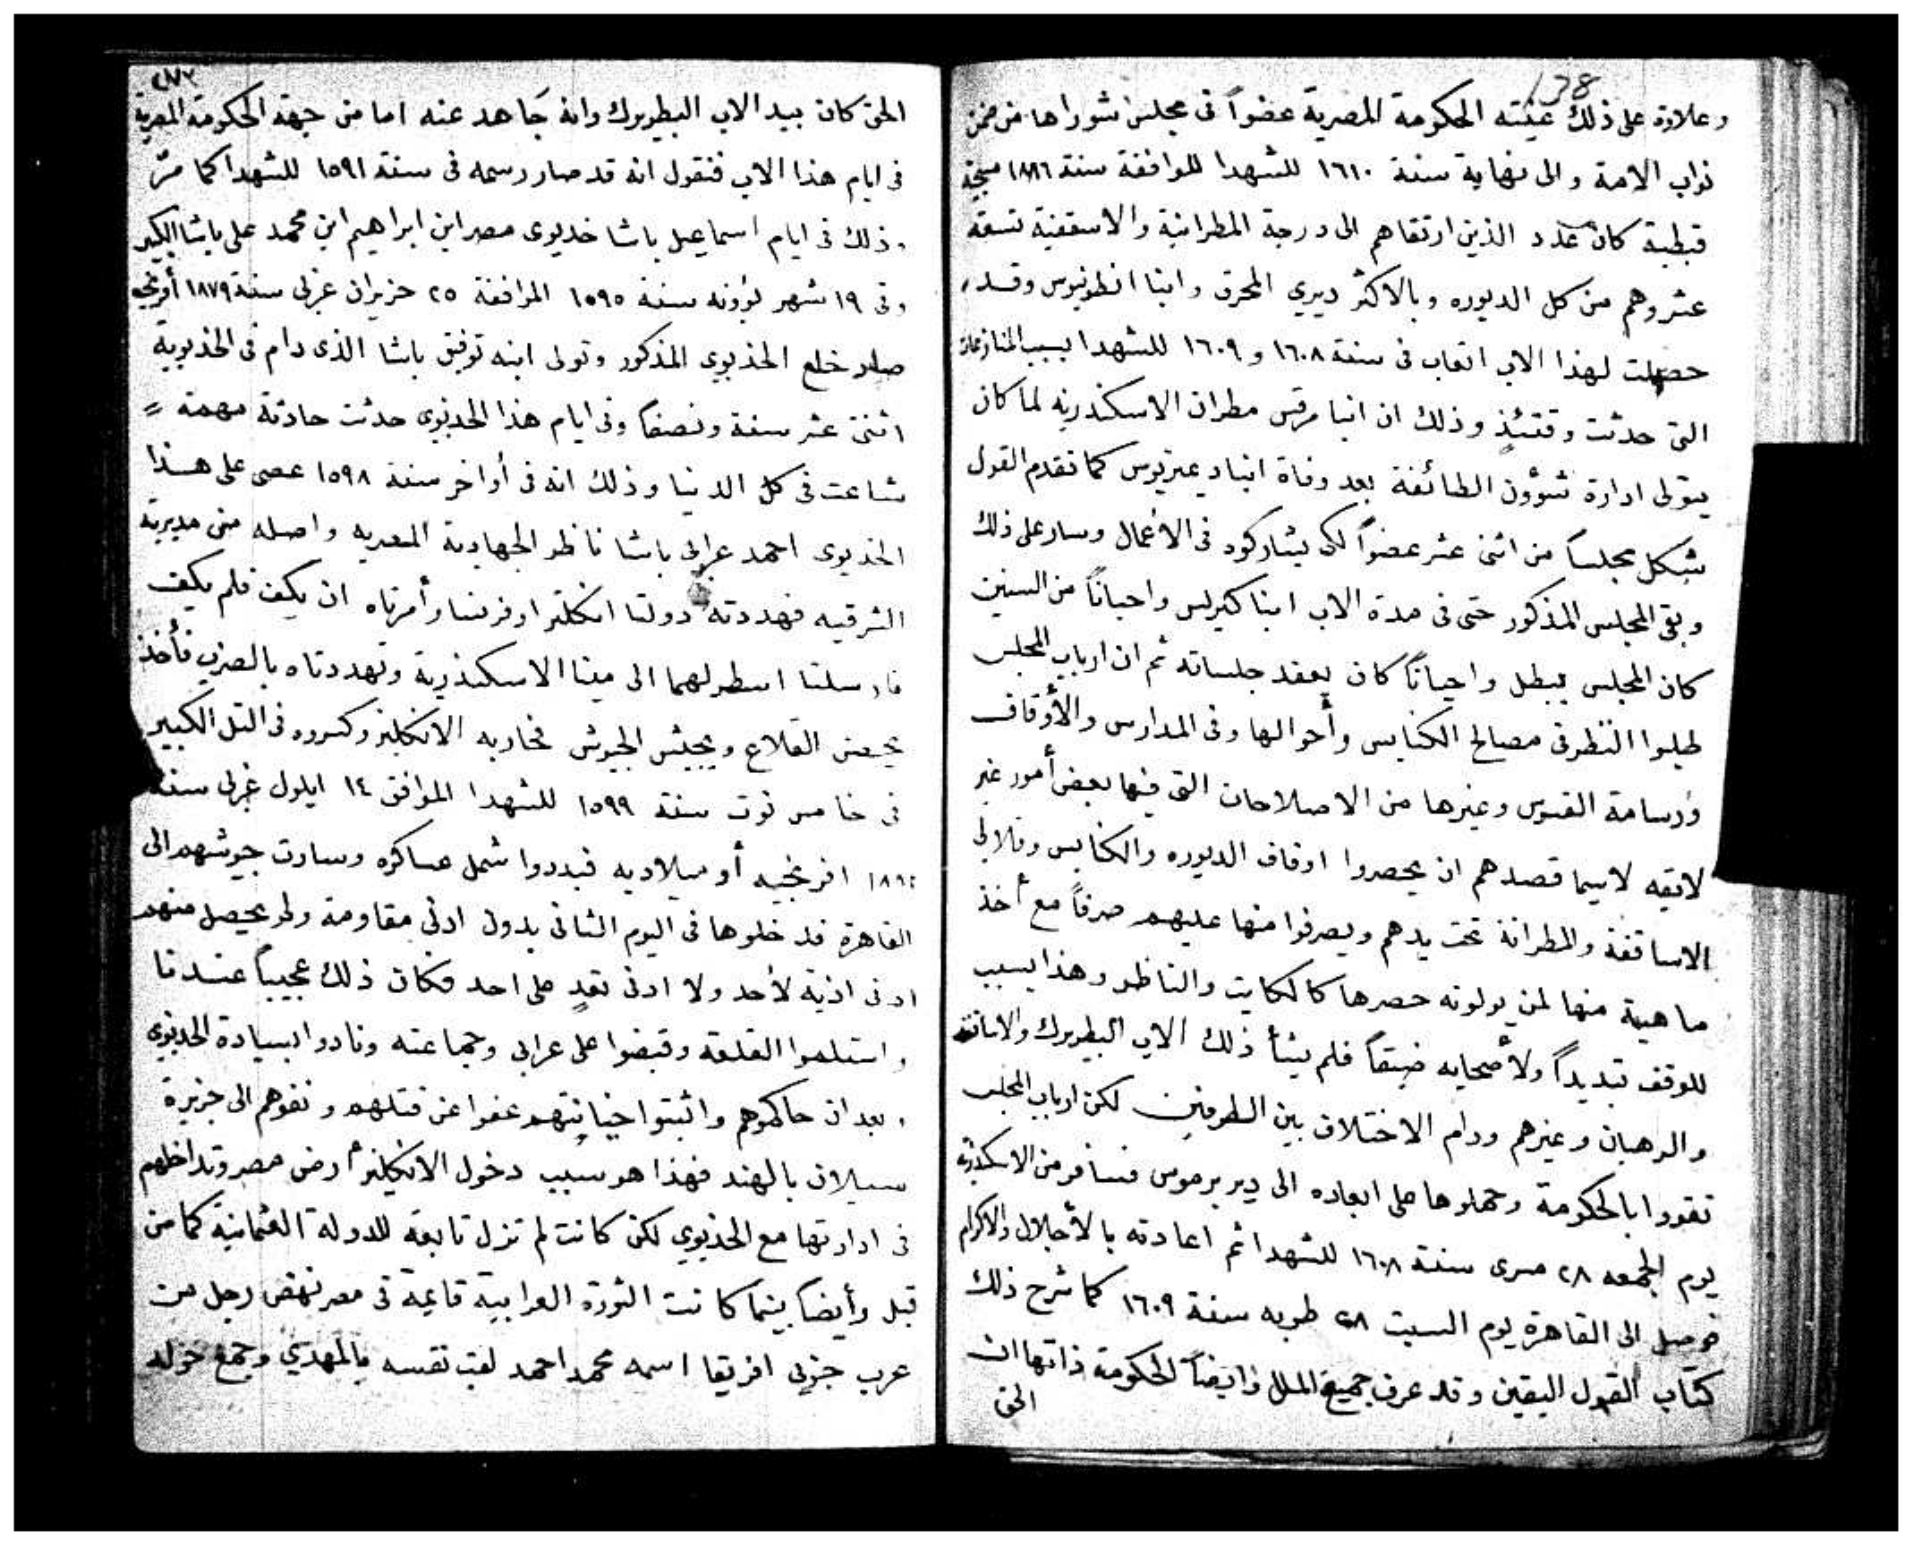 138
وعلاوة على ذلك عينته الحكومة المصرية عضواً فى مجلس شوراها من ضمن
نواب الامة والى نهاية سنة ١٦١٠ للشهدا الموافقة سنة
قبطية كان عدد الذين ارتقاهم الى درجة المطرانية والاسقفية تسعة
عشر وهم من كل الديوره وبالاكثر ديري المحرق وانبا انطونيوس وقد
حصلت لهذا الاب اتعاب فى سنة ١٦٠٨ و ١٦٠٩ للشهدا بسبب المنازعات
التى حدثت وقتئذٍ وذلك ان انبا مرقس مطران الاسكندريه لما كان
يتولى ادارة شؤون الطائفة بعد وفاة انبا ديمتريوس كما تقدم القول
شكل مجلساً من اثنى عشر عضواً لكى يشاركوه فى الأعمال وسار على ذلك
وبقى المجلس المذكور حتى فى مدة الاب انبا كيرلس واحياناً من السنين
كان المجلس يبطل واحياناً كان يعقد جلساته ثم ان ارباب المجلس
طلبوا النظر فى مصالح الكنايس وأحوالها وفى المدارس والأوقاف
ورسامة القسوس وغيرها من الاصلاحات التى فيها بعض أمور غير
لايقه لاسيما قصدهم ان يحصروا اوقاف الديوره والكنايس وقلالى
الاساقفة والمطرانة تحت يدهم ويصرفوا منها عليهم صرفاً مع أخذ
ماهية منها لمن يولونه حصرها كالكاتب والناظر وهذا يسبب
للوقف تبديداً ولأصحابه ضيقاً فلم يشأ ذلك الاب البطريرك والاساقفة
والرهبان وغيرهم ودام الاختلاف بين الطرفين لكن ارباب المجلس
تقووا بالحكومة وحملوها على ابعاده الى دير برموس فسافر من الاسكندرية
يوم الجمعه ٢٨ مسرى سنة ١٦٠٨ للشهدا ثم اعادته بالأجلال والاكرام
فوصل الى القاهرة يوم السبت ٢٨ طوبه سنة ١٦٠٩ كما شرح ذلك
كتاب القول اليقين وقد عرف جميع الملل وايضاً الحكومة ذاتها ان
الحق
الحق كان بيد الاب البطريرك وانه جاهد عنه اما من جهة الحكومة المصرية
فى ايام هذا الاب فنقول انه قد صار رسمه فى سنة ١٥٩١ للشهدا كما مرّ
وذلك فى ايام اسماعيل باشا خديوى مصر ابن ابراهيم ابن محمد على باشا الكبير
وفى ١٩ شهر بؤونه سنة ١٥٩٥ الموافقة ٢٥ حزيران غربى سنة ١٨٧٩ أفرنجيه
صار خلع الخديوي المذكور وتولى ابنه توفيق باشا الذى دام فى الخديوية
اثنتى عشر سنة ونصفاً وفى ايام هذا الخديوى حدثت حادثة مهمة
شاعت فى كل الدنيا وذلك انه فى أواخر سنة ١٥٩٨ عصى على هذا
الخديوى احمد عرابى باشا ناظر الجهادية المصريه واصله من مديرية
الشرقيه فهددته دولتا انكلترا وفرنسا وأمرتاه ان يكف فلم يكف
فارسلتا اسطولهما الى مينا الاسكندرية وتهددتاه بالضرب فأخذ
يحصن القلاع ويجيش الجيوش فحاربه الانكليز وكسروه فى التل الكبير
فى خامس توت سنة ١٥٩٩ للشهدا الموافق ١٤ ايلول غربى سنة
١٨٨٢ افرنجيه أو ميلاديه فبددوا شمل عساكره وسارت جيوشهم الى
القاهرة فدخلوها فى اليوم الثانى بدون ادنى مقاومة ولم يحصل منهم
ادنى اذية لأحد ولا ادنى تعدٍ على احد فكان ذلك عجيباً عندنا
واستلموا القلعه وقبضوا على عرابى وجماعته ونادوا بسيادة الخديوى
وبعد ان حاكموهم واثبتوا خيانتهم عفوا عن قتلهم ونفوهم الى جزيرة
سيلان بالهند فهذا هو سبب دخول الانكليز أرض مصر وتداخلهم
فى ادارتها مع الخديوي لكن كانت لم تزل تابعه للدولة العثمانية كما من
قبل وأيضاً بينما كانت الثورة العرابية قايمة فى مصر نهض رجل من
عرب جنوبى افريقا اسمه محمد احمد لقب نفسه بالمهدي وجمع حوله